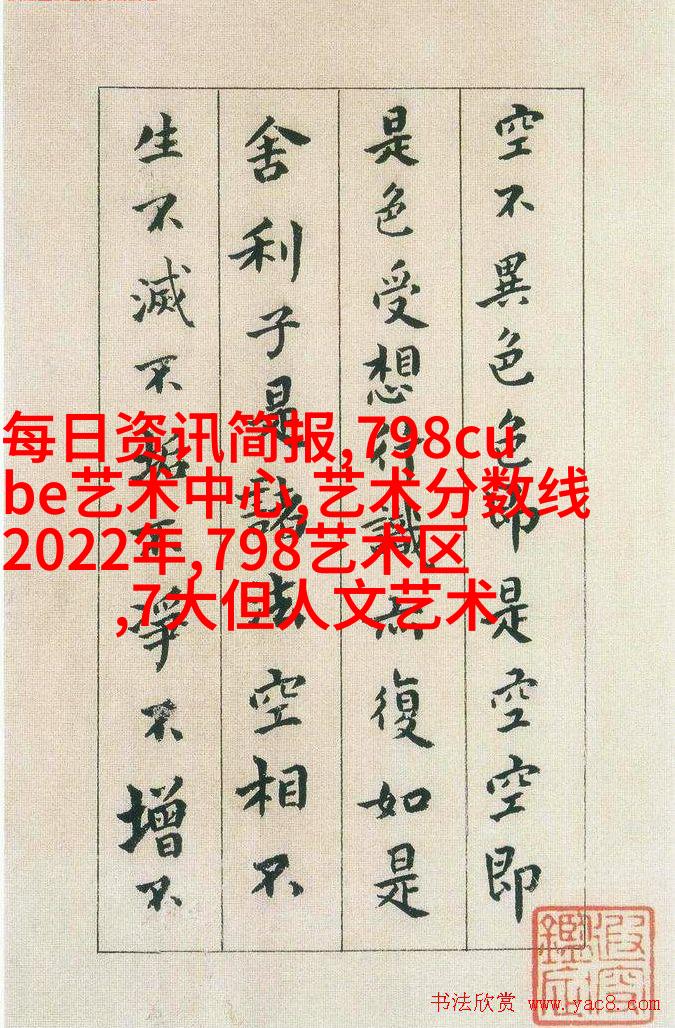 空不異色色即是空空即
是色受想行識亦復如是
舍利子是諸法空相不
生不滅不垢不淨不增不
每日资讯简报,798cu
be艺术中心,艺术分数线
2022年,798艺术区
,7大但人文艺术
书法欣赏 www.yac8.com